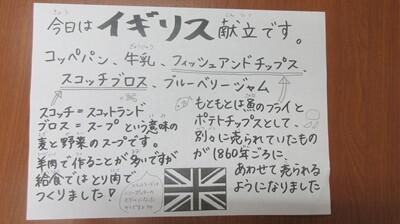 今日はイギリス献立です。
コッペパン、牛乳、フィッシュアンドチップス、
スコッチブロス、ブルーベリージャム
スコッチ=スコットランド
ブロス=スープという意味の
麦と野菜のスープです。
羊肉で作ることが多いですが
給食ではとり肉で
つくりました!
もともとは魚のフライと
ポテトチップスとして、
別々に売られていたもの
が1860年ごろに、
あわせて売られる
ようになりました